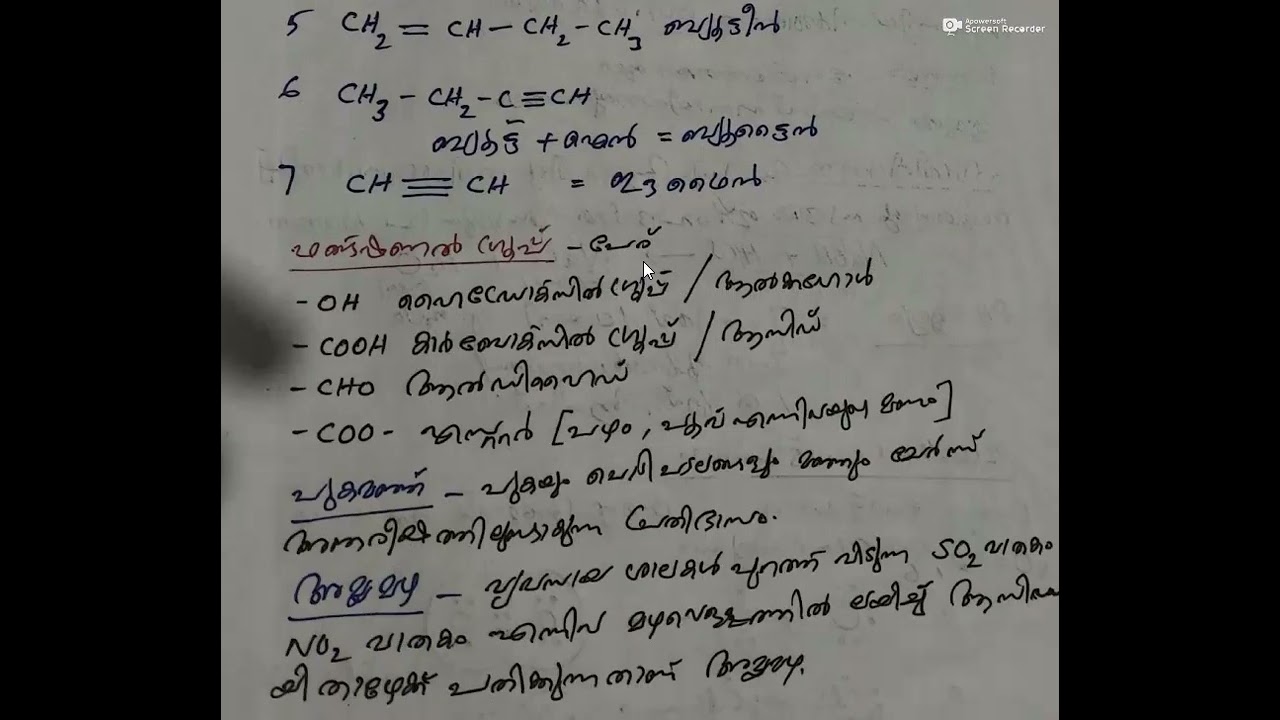 Apowersoft
Screen Recorder
5 CH2 = CH - CH2 - CH3 ബ്യൂട്ടീൻ
6 CH3 - CH2 - C ≡ CH
ബ്യൂട്ട് + ഐൻ = ബ്യൂട്ടൈൻ
7 CH ≡ CH = ഈഥൈൻ
ഫങ്ഷണൽ ഗ്രൂപ്പ് - പേര്
- OH ഹൈഡ്രോക്സിൽ ഗ്രൂപ്പ് / ആൽക്കഹോൾ
- COOH കാർബോക്സിൽ ഗ്രൂപ്പ് / ആസിഡ്
- CHO ആൽഡിഹൈഡ്
- COO - എസ്റ്റർ [പഴം, പൂവ് എന്നിവയുടെ മണം]
പുകമഞ്ഞ് - പുകയും പൊടിപടലങ്ങളും മഞ്ഞും ചേർന്ന്
അന്തരീക്ഷത്തിലുണ്ടാകുന്ന പ്രതിഭാസം.
അമ്ലമഴ - വ്യവസായ ശാലകൾ പുറത്ത് വിടുന്ന SO2 വാതകം
NO2 വാതകം എന്നിവ മഴവെള്ളത്തിൽ ലയിച്ച് ആസിഡാ
യി താഴേക്ക് പതിക്കുന്നതാണ് അമ്ലമഴ.